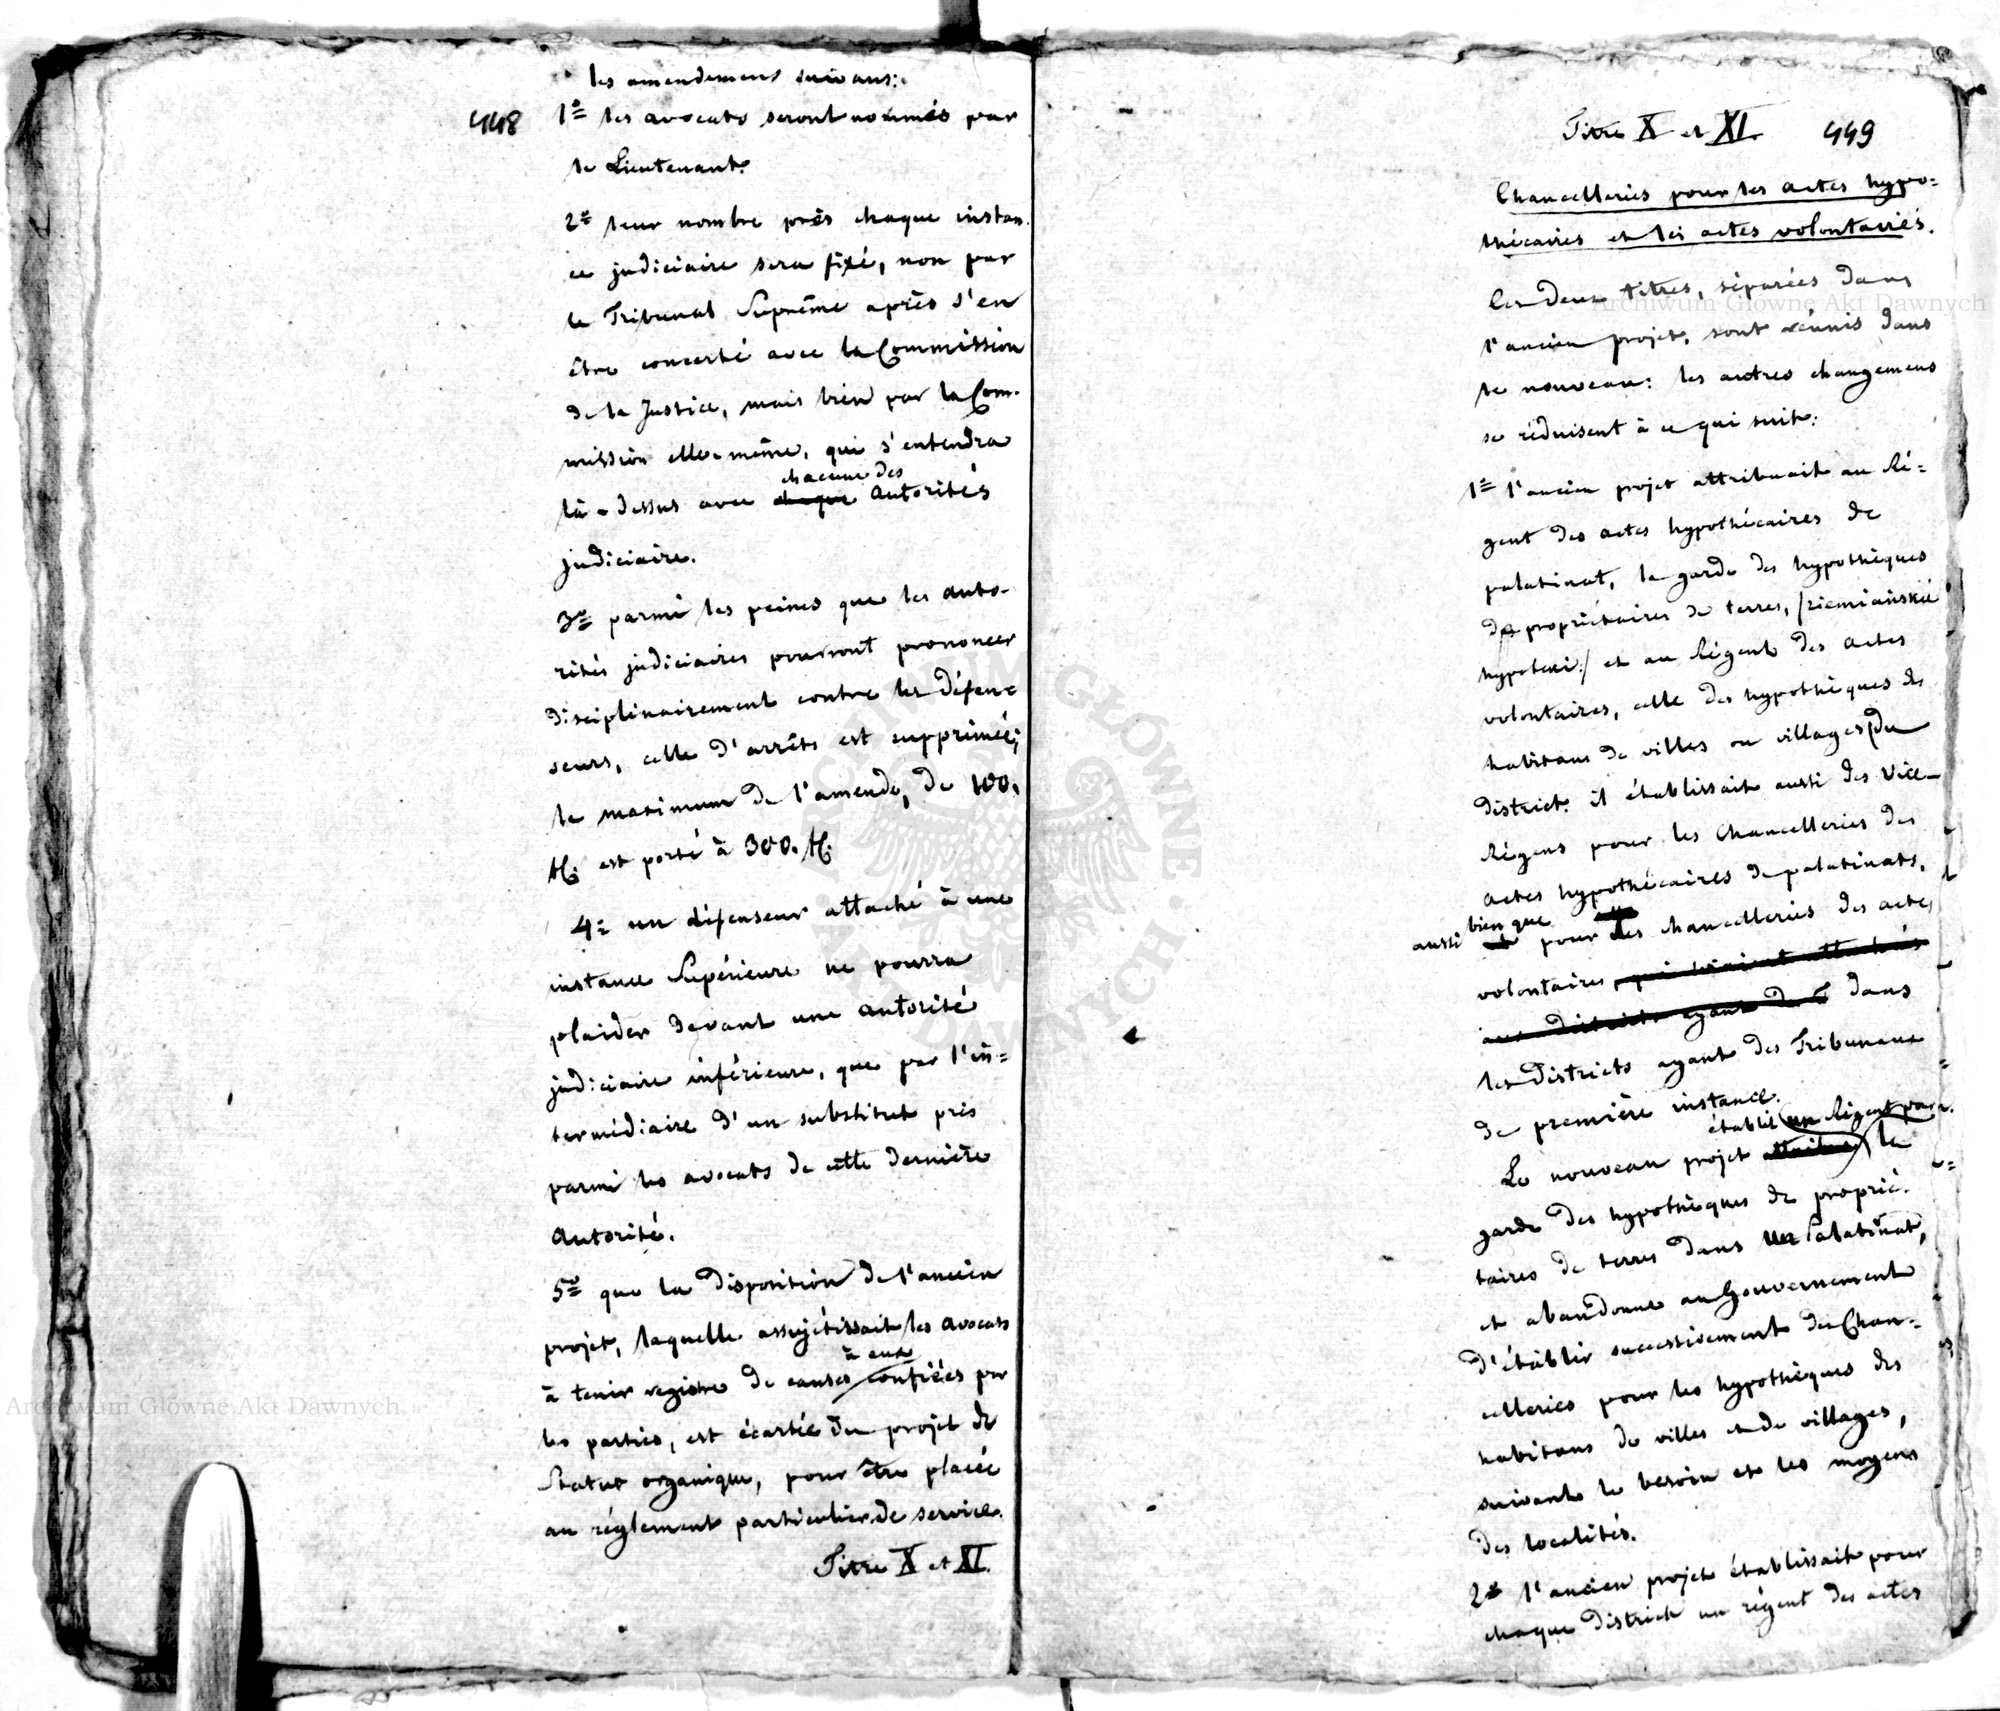 448
les amendemens suivans:
1º les avocats seront nommés par
le Lieutenant.
2º leur nombre près chaque instan-
ce judiciaire sera fixé, non par
le Tribunal Suprême après s'en
être concerté avec la Commission
de la Justice, mais bien par la Com-
mission elle-même, qui s'entendra
chacune des
là-dessus avec chaque autorités
judiciaire.
3º parmi les peines que les auto-
rités judiciaires pourront prononcer
disciplinairement contre les défen=
seurs, celle d'arrêts est supprimée;
le maximum de l'amende, de 100.
est porté à 300.
4º un défenseur attaché à une
instance Supérieure ne pourra
plaider devant une autorité
judiciaire inférieure, que par l'in=
termédiaire d'un substitut pris
parmi les avocats de cette dernière
autorité.
5º que la disposition de l'ancien
projet, laquelle assujétissait les avocats
à eux
à tenir registre de causes confiées par
les parties, est écartée du projet de
Statut organique, pour être placée
au réglement particulier de service.
Titre X et XI.
Titre X et XI. 449
Chancelleries pour les actes hypo=
thécaires et les actes volontaires.
Ces deux titres, séparées dans
l'ancien projet, sont réunis dans
le nouveau: les autres changemens
se réduisent à ce qui suit:
1º l'ancien projet attribuait au Ré=
gent des actes hypothécaires de
palatinat, la garde des hypothèques
de propriétaires de terres, /ziemiańskie
hypoteki:/ et au Régent des actes
volontaires, celle des hypothèques des
habitans de villes ou villages du
district: il établissait aussi des Vice-
Régens pour les Chancelleries des
actes hypothécaires de palatinats,
aussi bien que
pour les chancelleries des actes
volontaires, qui seraient attachés
aux districts ayant des dans
les districts ayant des Tribunaux
de première instance.
établit un Régent pour
Le nouveau projet attribue la
garde des hypothèques de proprié-
taires de terres dans un Palatinat,
et abandonne au Gouvernement
d'établir successivement des Chan=
celleries pour les hypothèques des
habitans de villes et de villages,
suivant le besoin et les moyens
des localités.
2º l'ancien projet établissait pour
chaque district un régent des actes
Archiwum Główne Akt Dawnych
Archiwum Główne Akt Dawnych
ARCHIWUM GŁÓWNE AKT DAWNYCH